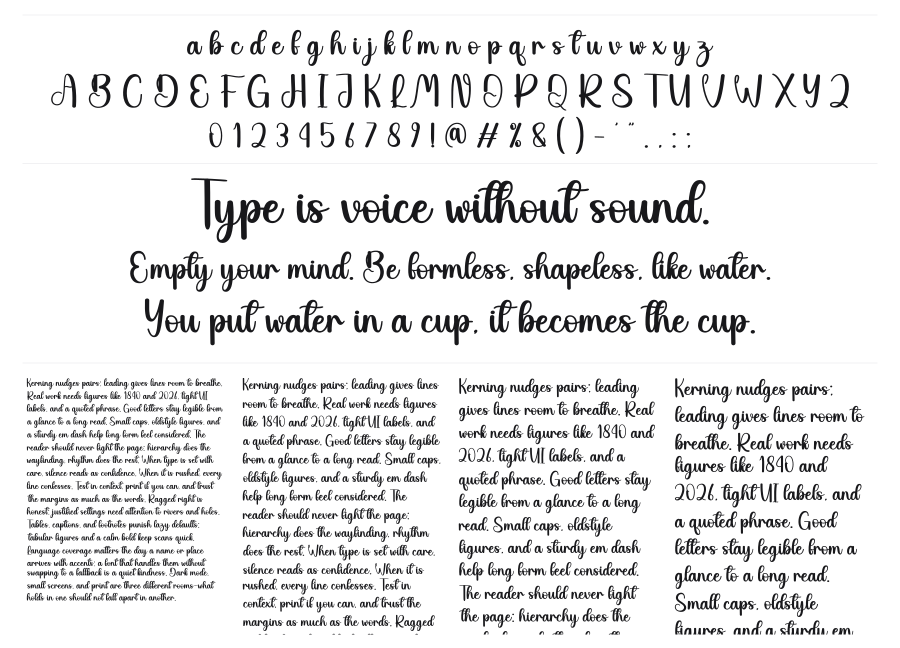 a b c d e f g h i j k l m n o p q r s t u v w x y z
A B C D E F G H I J K L M N O P Q R S T U V W X Y Z
0 1 2 3 4 5 6 7 8 9 ! @ # % & ( ) - ' " . , : ;
Type is voice without sound.
Empty your mind. Be formless, shapeless, like water.
You put water in a cup, it becomes the cup.
Kerning nudges pairs; leading gives lines room to breathe.
Real work needs figures like 1840 and 2026, tight UI
labels, and a quoted phrase. Good letters stay legible from
a glance to a long read. Small caps, oldstyle figures, and
a sturdy em dash help long form feel considered. The
reader should never fight the page; hierarchy does the
wayfinding, rhythm does the rest. When type is set with
care, silence reads as confidence. When it is rushed, every
line confesses. Test in context, print if you can, and trust
the margins as much as the words. Ragged right is
honest; justified settings need attention to rivers and holes.
Tables, captions, and footnotes punish lazy defaults;
tabular figures and a calm bold keep scans quick.
Language coverage matters the day a name or place
arrives with accents; a font that handles them without
swapping to a fallback is a quiet kindness. Dark mode,
small screens, and print are three different rooms—what
holds in one should not fall apart in another.
Kerning nudges pairs; leading gives lines
room to breathe. Real work needs figures
like 1840 and 2026, tight UI labels, and
a quoted phrase. Good letters stay legible
from a glance to a long read. Small caps,
oldstyle figures, and a sturdy em dash
help long form feel considered. The
reader should never fight the page;
hierarchy does the wayfinding, rhythm
does the rest. When type is set with care,
silence reads as confidence. When it is
rushed, every line confesses. Test in
context, print if you can, and trust the
margins as much as the words. Ragged
Kerning nudges pairs; leading
gives lines room to breathe. Real
work needs figures like 1840 and
2026, tight UI labels, and a
quoted phrase. Good letters stay
legible from a glance to a long
read. Small caps, oldstyle
figures, and a sturdy em dash
help long form feel considered.
The reader should never fight
the page; hierarchy does the
Kerning nudges pairs;
leading gives lines room to
breathe. Real work needs
figures like 1840 and
2026, tight UI labels, and
a quoted phrase. Good
letters stay legible from a
glance to a long read.
Small caps, oldstyle
figures, and a sturdy em